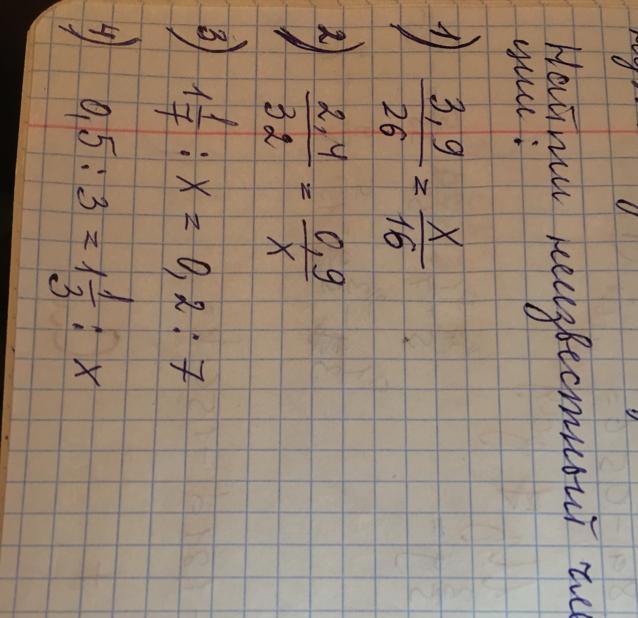 Найти неизвестный
ции:
1) 3,9/26 = x/16
2) 2,4/32 = 0,9/x
3) 1 1/7 : x = 0,2 : 7
4) 0,5 : 3 = 1 1/3 : x